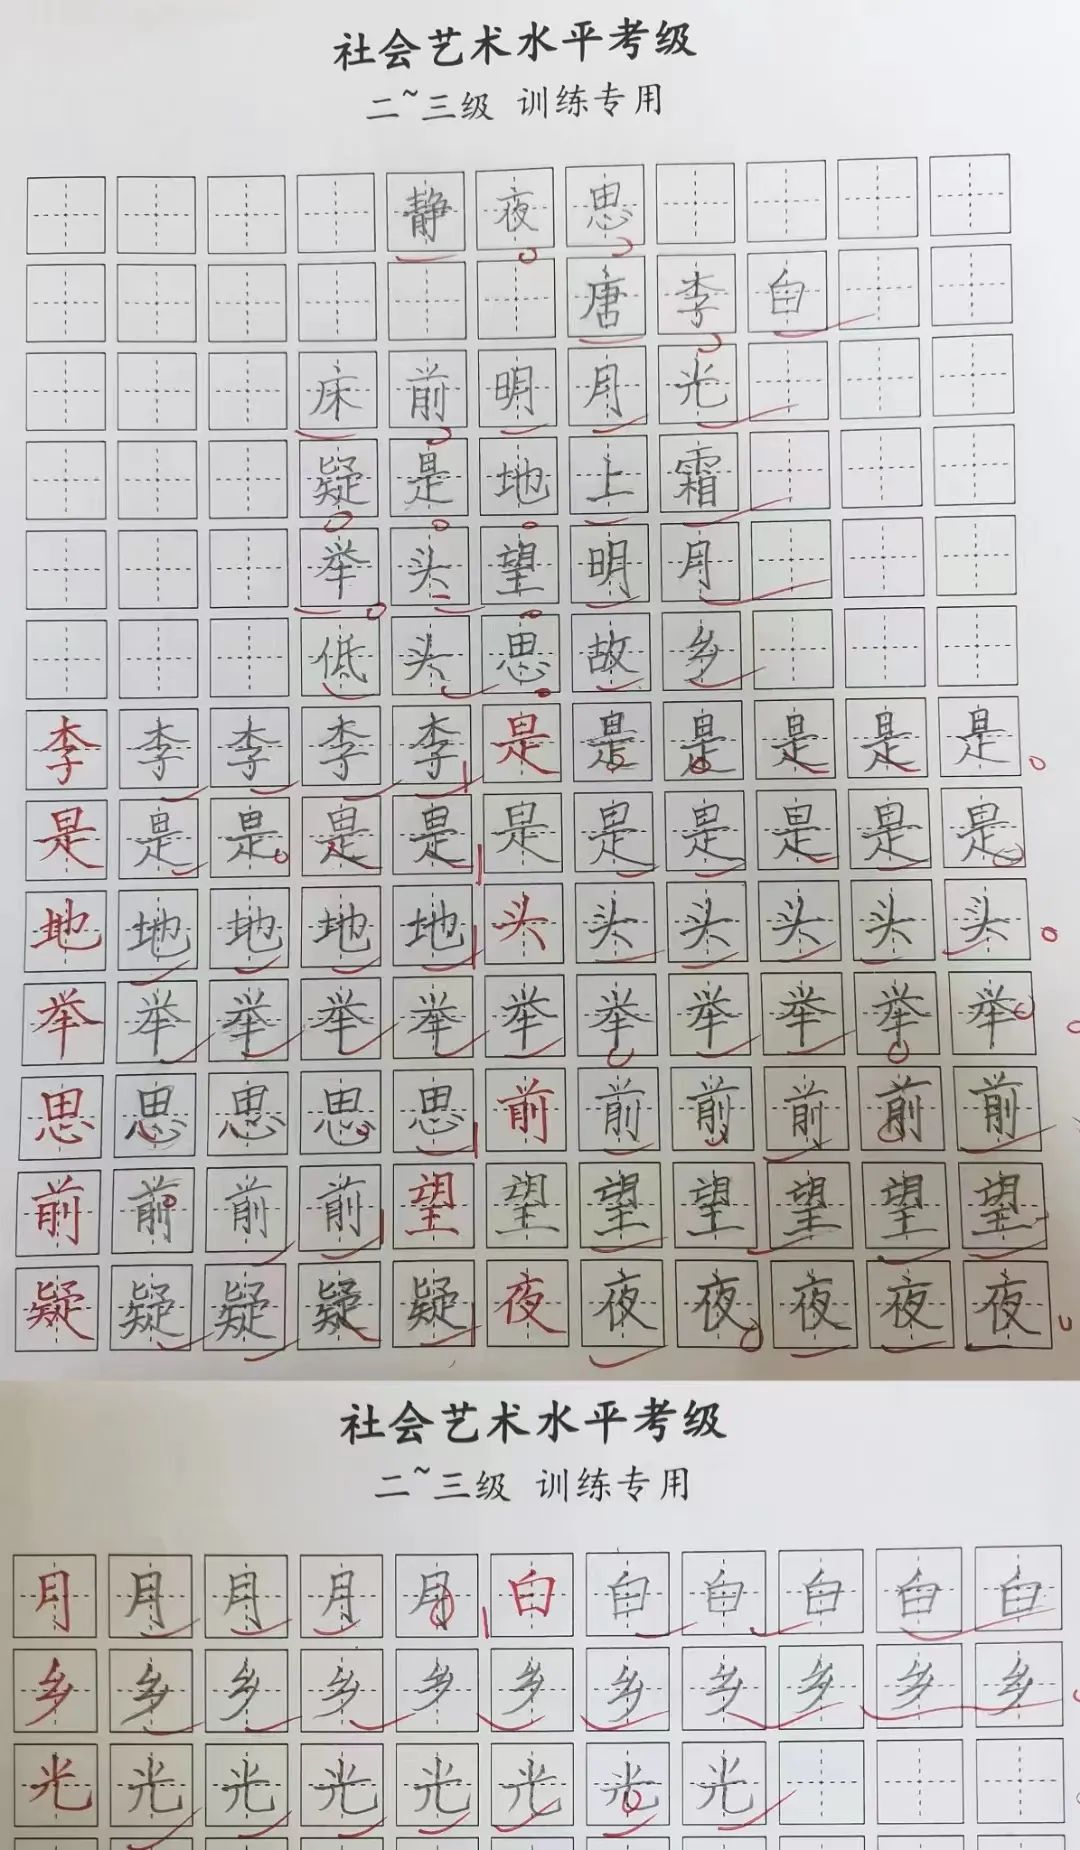 社会艺术水平考级
二~三级 训练专用
静夜思
唐李白
床前明月光
疑是地上霜
举头望明月
低头思故乡
李李李李李是是是是是是
是是是是是是是是是是是
地地地地地头头头头头头
举举举举举举举举举举举
思思思思思前前前前前前
前前前前望望望望望望望
疑疑疑疑疑夜夜夜夜夜夜
社会艺术水平考级
二~三级 训练专用
月月月月月白白白白白白
乡乡乡乡乡乡乡乡乡乡乡
光光光光光光光光